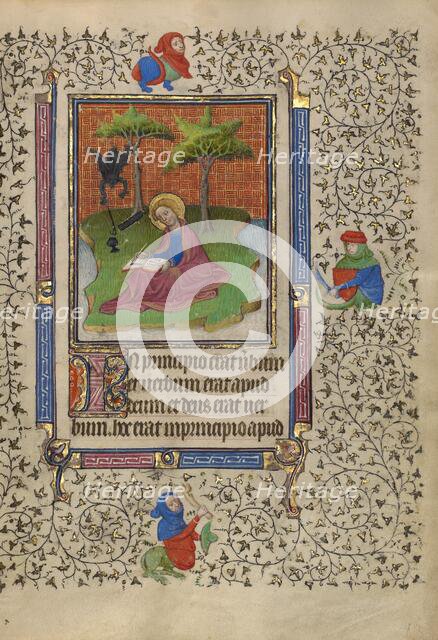 Heritage Heritage
Heritage Heritage
In principio erat uerbum
et uerbum erat apud
deum et deus erat uer
bum. hoc erat in principio apud
Heritage Heritage